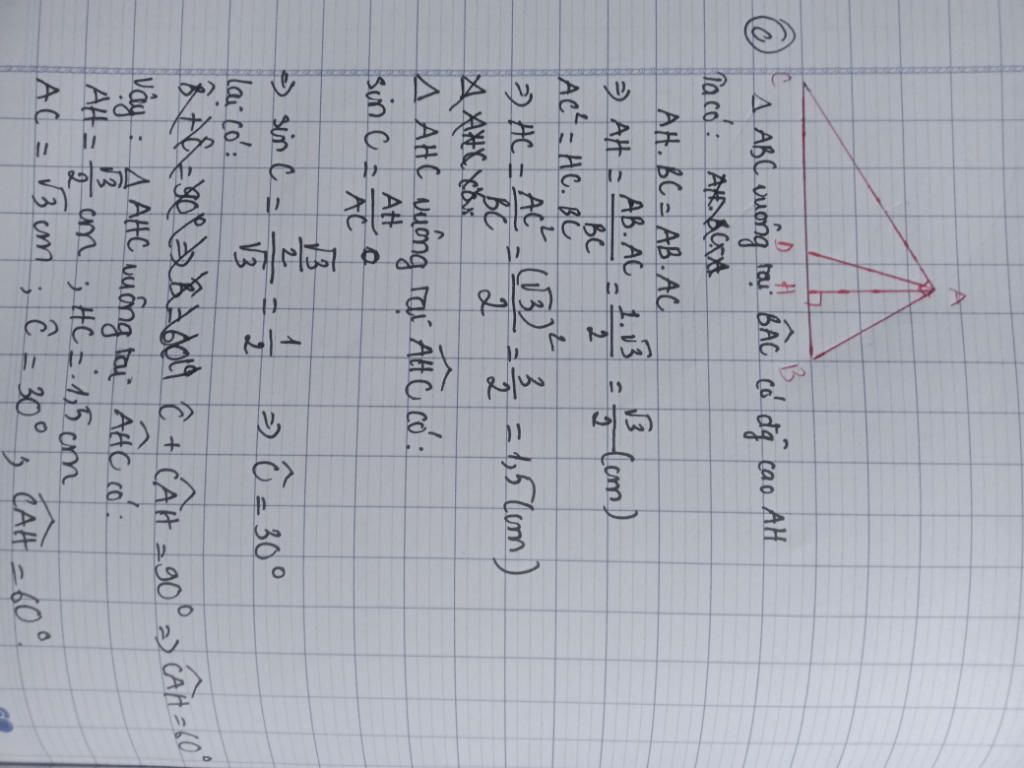 c)
C D H B A
Δ ABC vuông tại BÂC có đg cao AH
Ta có:
AH.BC = AB.AC
=> AH = AB.AC / BC = 1.√3 / 2 = √3 / 2 (cm)
AC² = HC.BC
=> HC = AC² / BC = (√3)² / 2 = 3 / 2 = 1,5 (cm)
Δ AHC vuông tại AĤC có:
sin C = AH / AC
=> sin C = (√3 / 2) / √3 = 1 / 2 => Ĉ = 30°
lại có:
Ĉ + CÂH = 90° => CÂH = 60°
Vậy: Δ AHC vuông tại AĤC có:
AH = √3 / 2 cm ; HC = 1,5 cm
AC = √3 cm ; Ĉ = 30° ; CÂH = 60°.